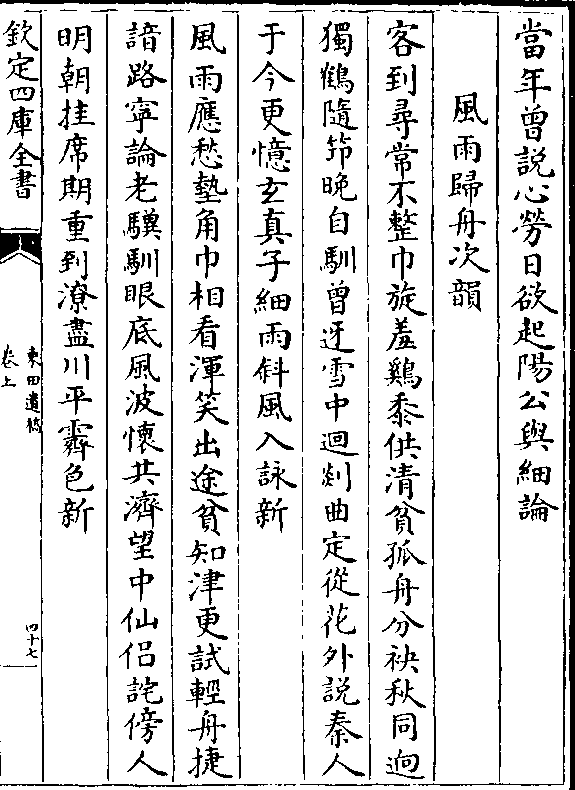 當年曾説心勞日欲起陽公與細論
風雨歸舟次韻
客到尋常不整巾旋羞鷄黍供清貧孤舟分袂秋同逈
獨鶴隨笻晚自馴曾迓雪中迴剡曲定從花外説秦人
于今更憶玄真子細雨斜風入詠新
風雨應愁墊角巾相看渾笑出途貧知津更試輕舟捷
諳路寧論老驥馴眼底風波懷共濟望中仙侣詫傍人
明朝挂席期重到潦盡川平霽色新
欽定四庫全書
東田遺稿
卷上
四十七